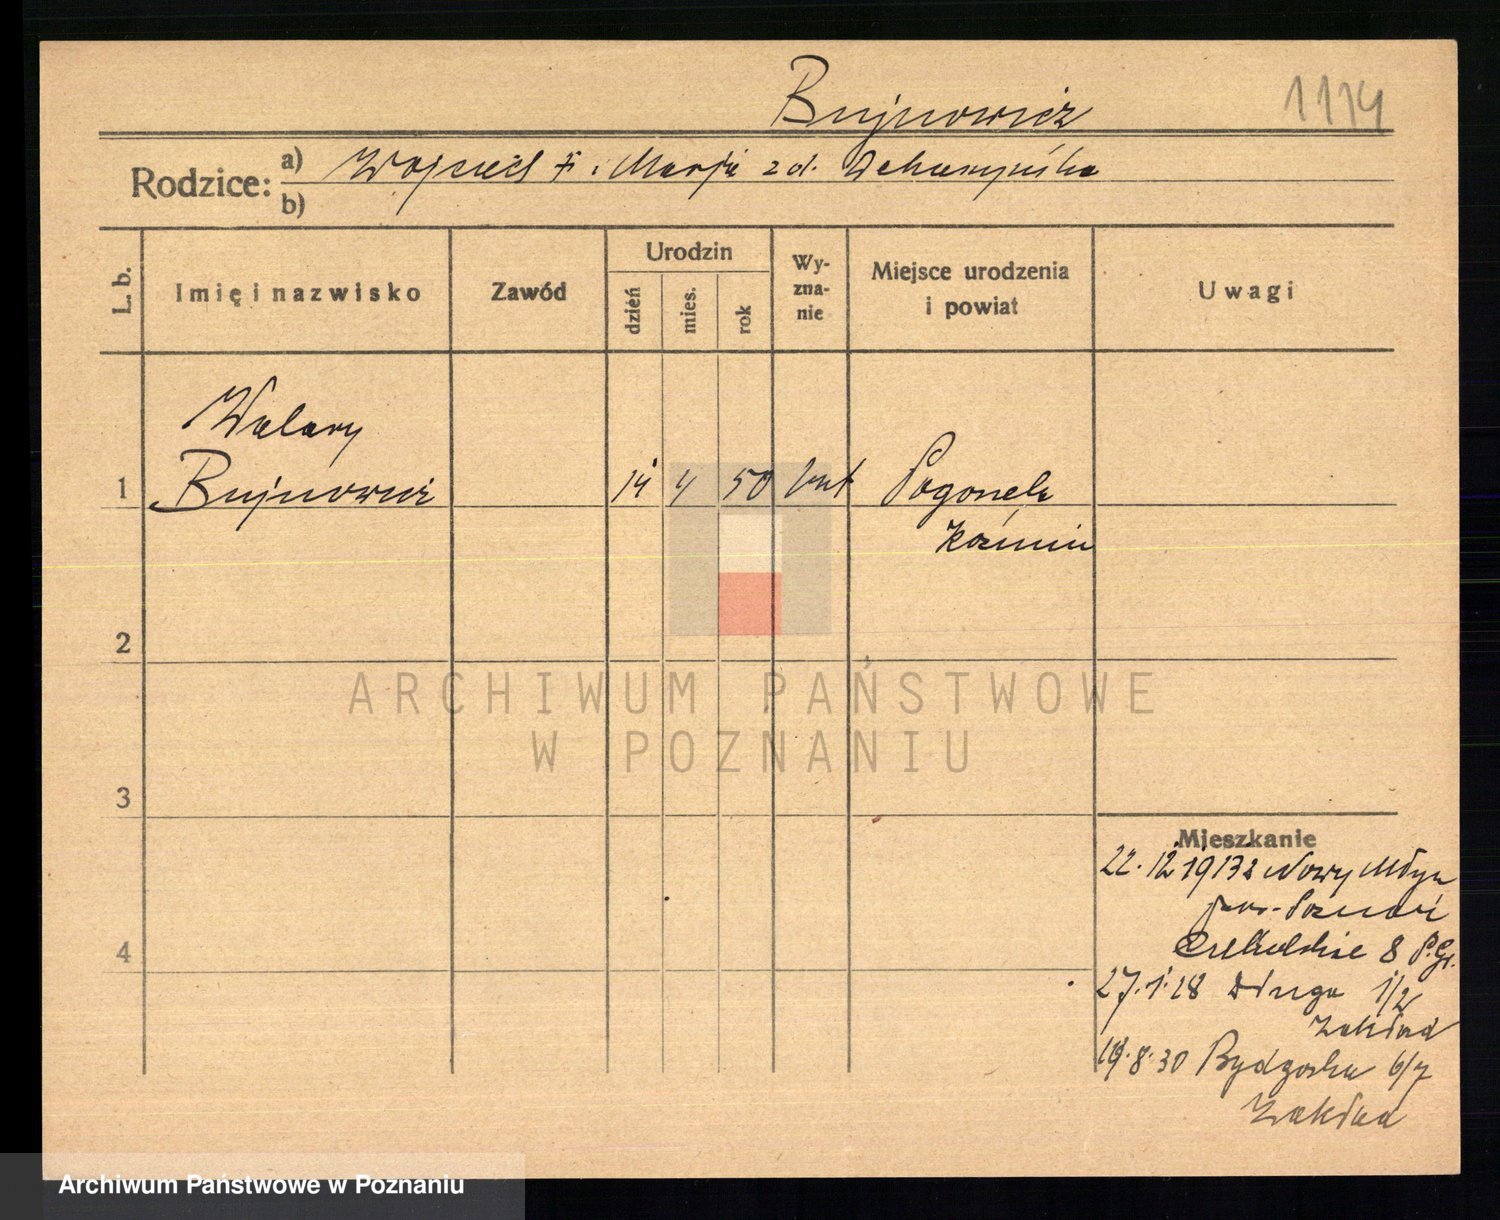 Bujnowicz
1114
Rodzice:
a) Wojciech i Marja z d.
b)
L. b.
Imię i nazwisko
Zawód
Urodzin
dzień
mies.
rok
Wy-
zna-
nie
Miejsce urodzenia
i powiat
Uwagi
Walery
1 Bujnowicz 14 4 50 kat Pogorzela
Koźmin
2
3
4
ARCHIWUM PAŃSTWOWE
W POZNANIU
Mieszkanie
22.12.1913 z Nowy Młyn
pow. Poznań
8 P.Gr.
27.1.28 Długa 1/2
Zakład
19.8.30 Bydgoska 6/7
Zakład
Archiwum Państwowe w Poznaniu